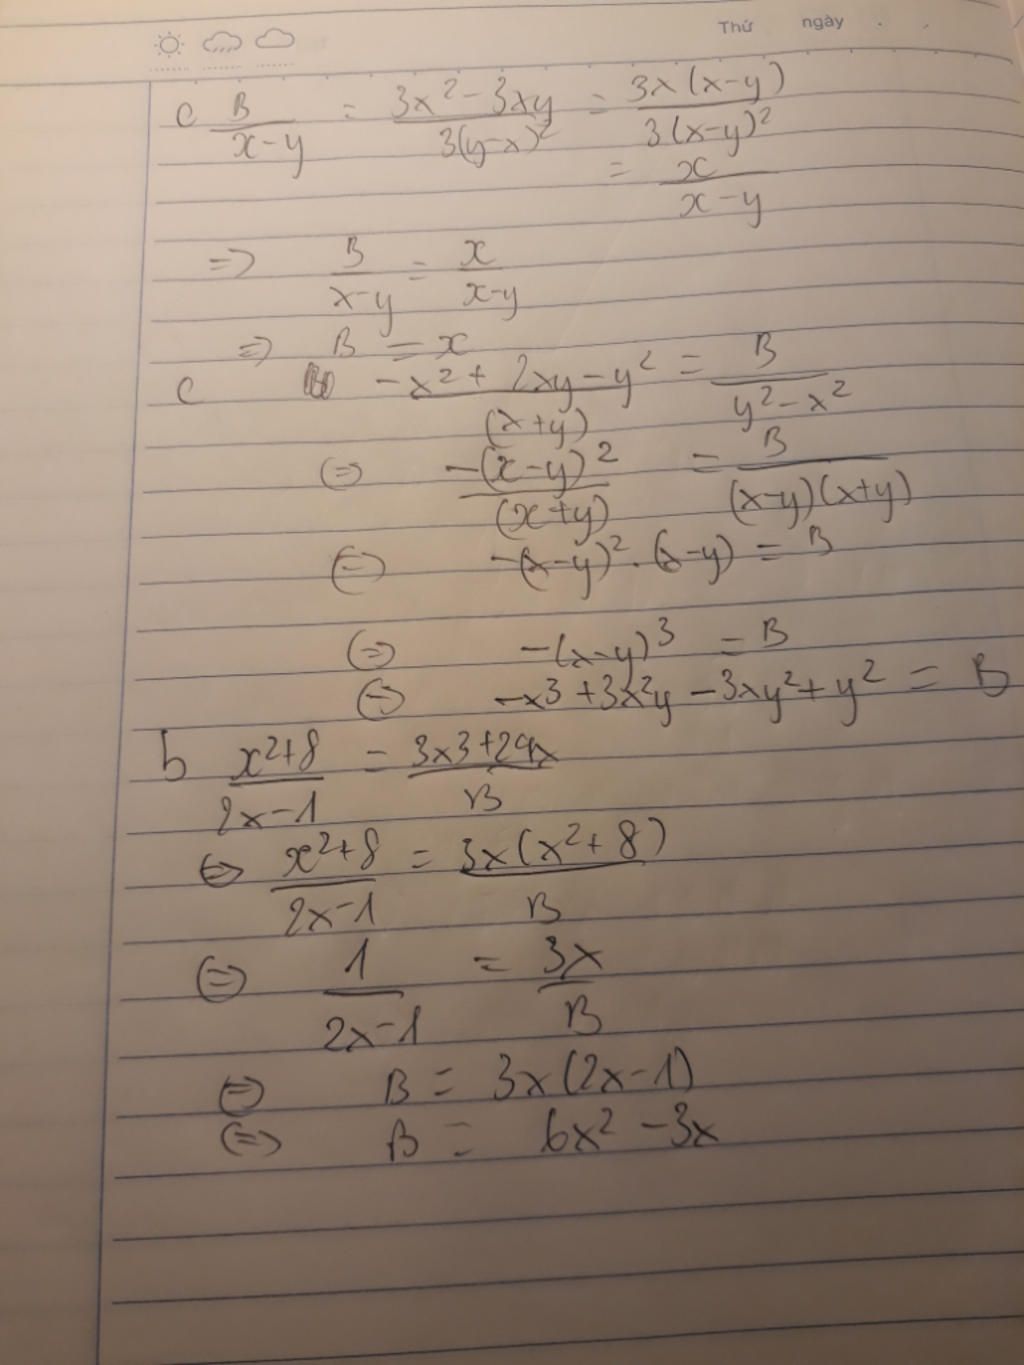 Thứ ngày . .
c B/(x-y) = (3x² - 3xy)/(3(y-x)²) = 3x(x-y)/(3(x-y)²)
= x/(x-y)
=> B/(x-y) = x/(x-y)
=> B = x
c (-x² + 2xy - y²)/(x+y) = B/(y² - x²)
(=>) -(x-y)²/(x+y) = B/((x-y)(x+y))
(=>) -(x-y)² . (x-y) = B
(=>) -(x-y)³ = B
(=>) -x³ + 3x²y - 3xy² + y² = B
b (x²+8)/(2x-1) = (3x3+24x)/B
<=> (x²+8)/(2x-1) = 3x(x²+8)/B
(=>) 1/(2x-1) = 3x/B
(=>) B = 3x(2x-1)
(=>) B = 6x² - 3x